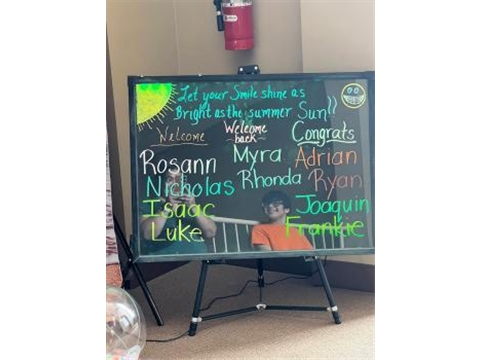 Let your Smile shine as
Bright as the summer Sun!!
Welcome
Rosann
Nicholas
Isaac
Luke
Welcome
back
Myra
Rhonda
Congrats
Adrian
Ryan
Joaquin
Frankie